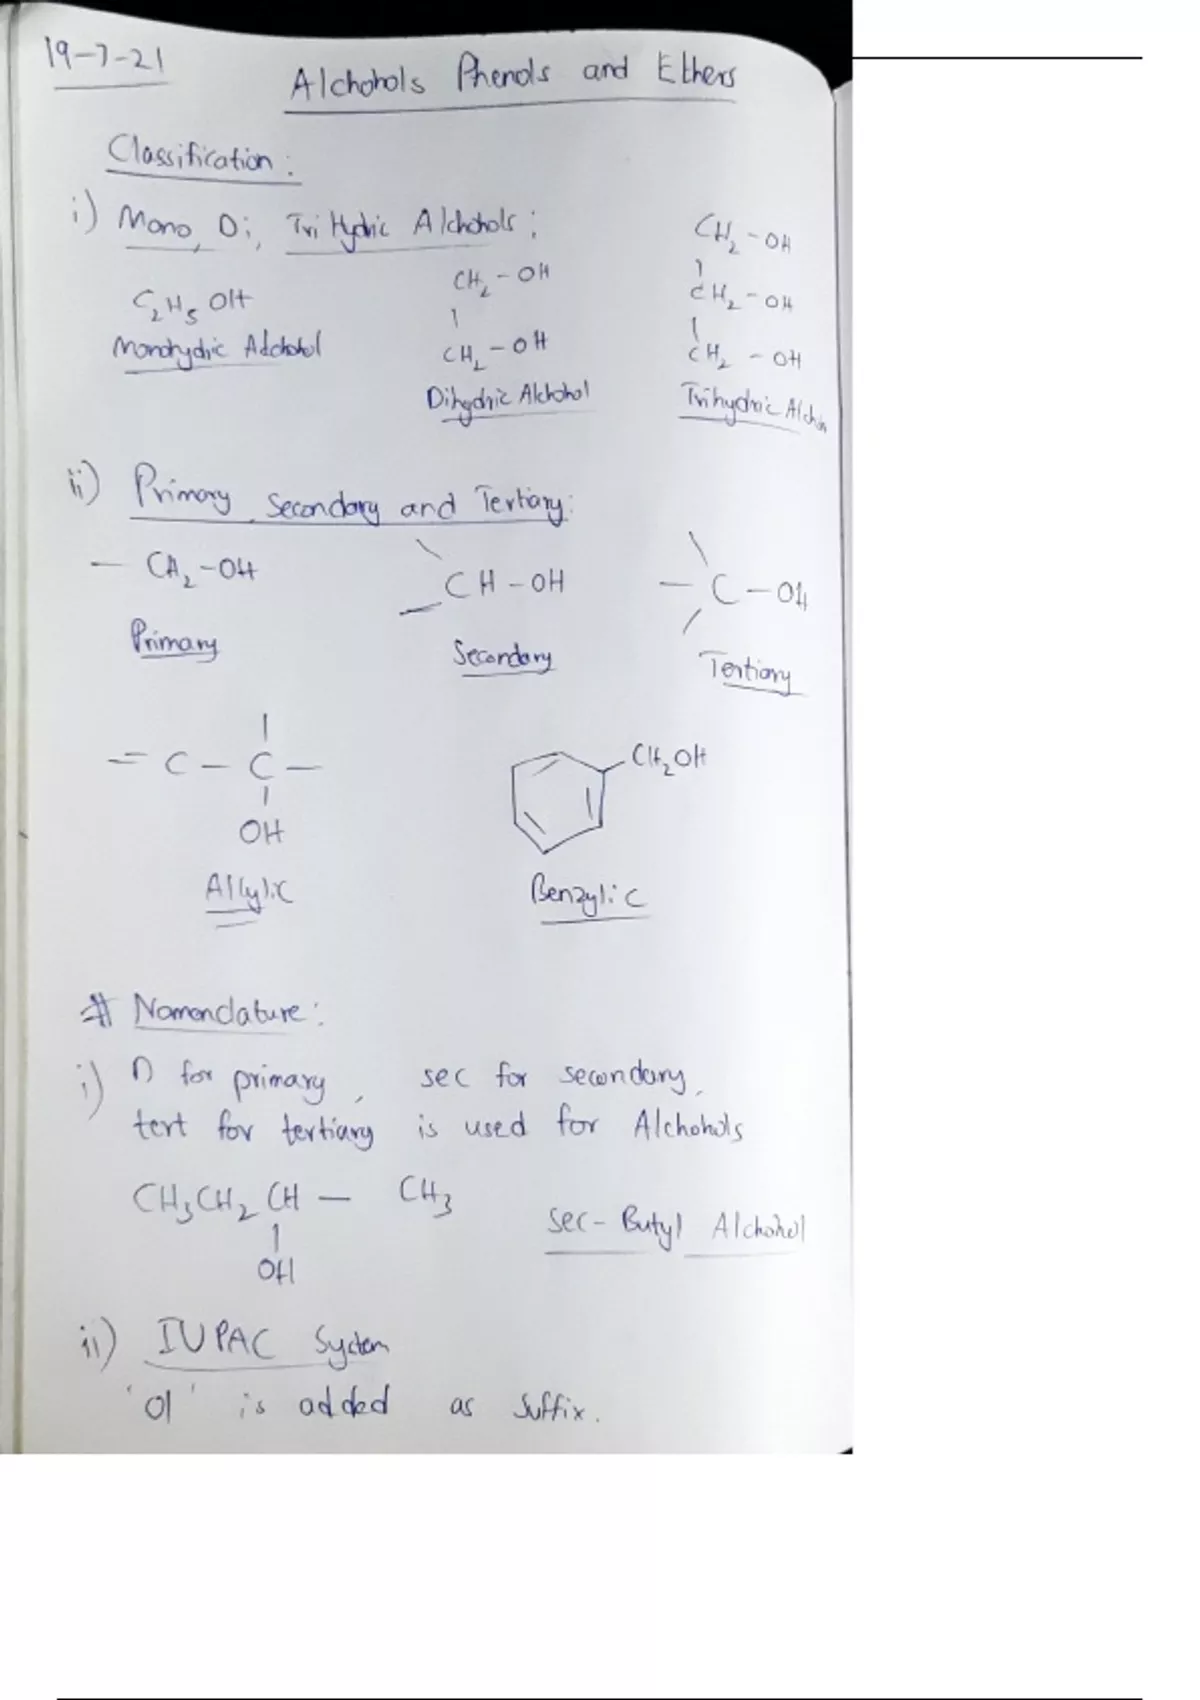 19-7-21
Alchohols Phenols and Ethers
Classification:
i) Mono, Di, Tri Hydric Alchohols:
C2H5OH
Monohydric Alchohol
CH2-OH
|
CH2-OH
Dihydric Alchohol
CH2-OH
|
CH2-OH
|
CH2-OH
Trihydric Alchoh
ii) Primary, Secondary and Tertiary:
- CH2-OH
Primary
\
CH-OH
Secondary
\
- C - OH
/
Tertiary
|
= C - C -
|
OH
Allylic
CH2OH
Benzylic
# Nomenclature:
i) n for primary, sec for secondary,
tert for tertiary is used for Alchohols
CH3CH2CH - CH3
|
OH
sec-Butyl Alchohol
ii) IUPAC System
'ol' is added as suffix.